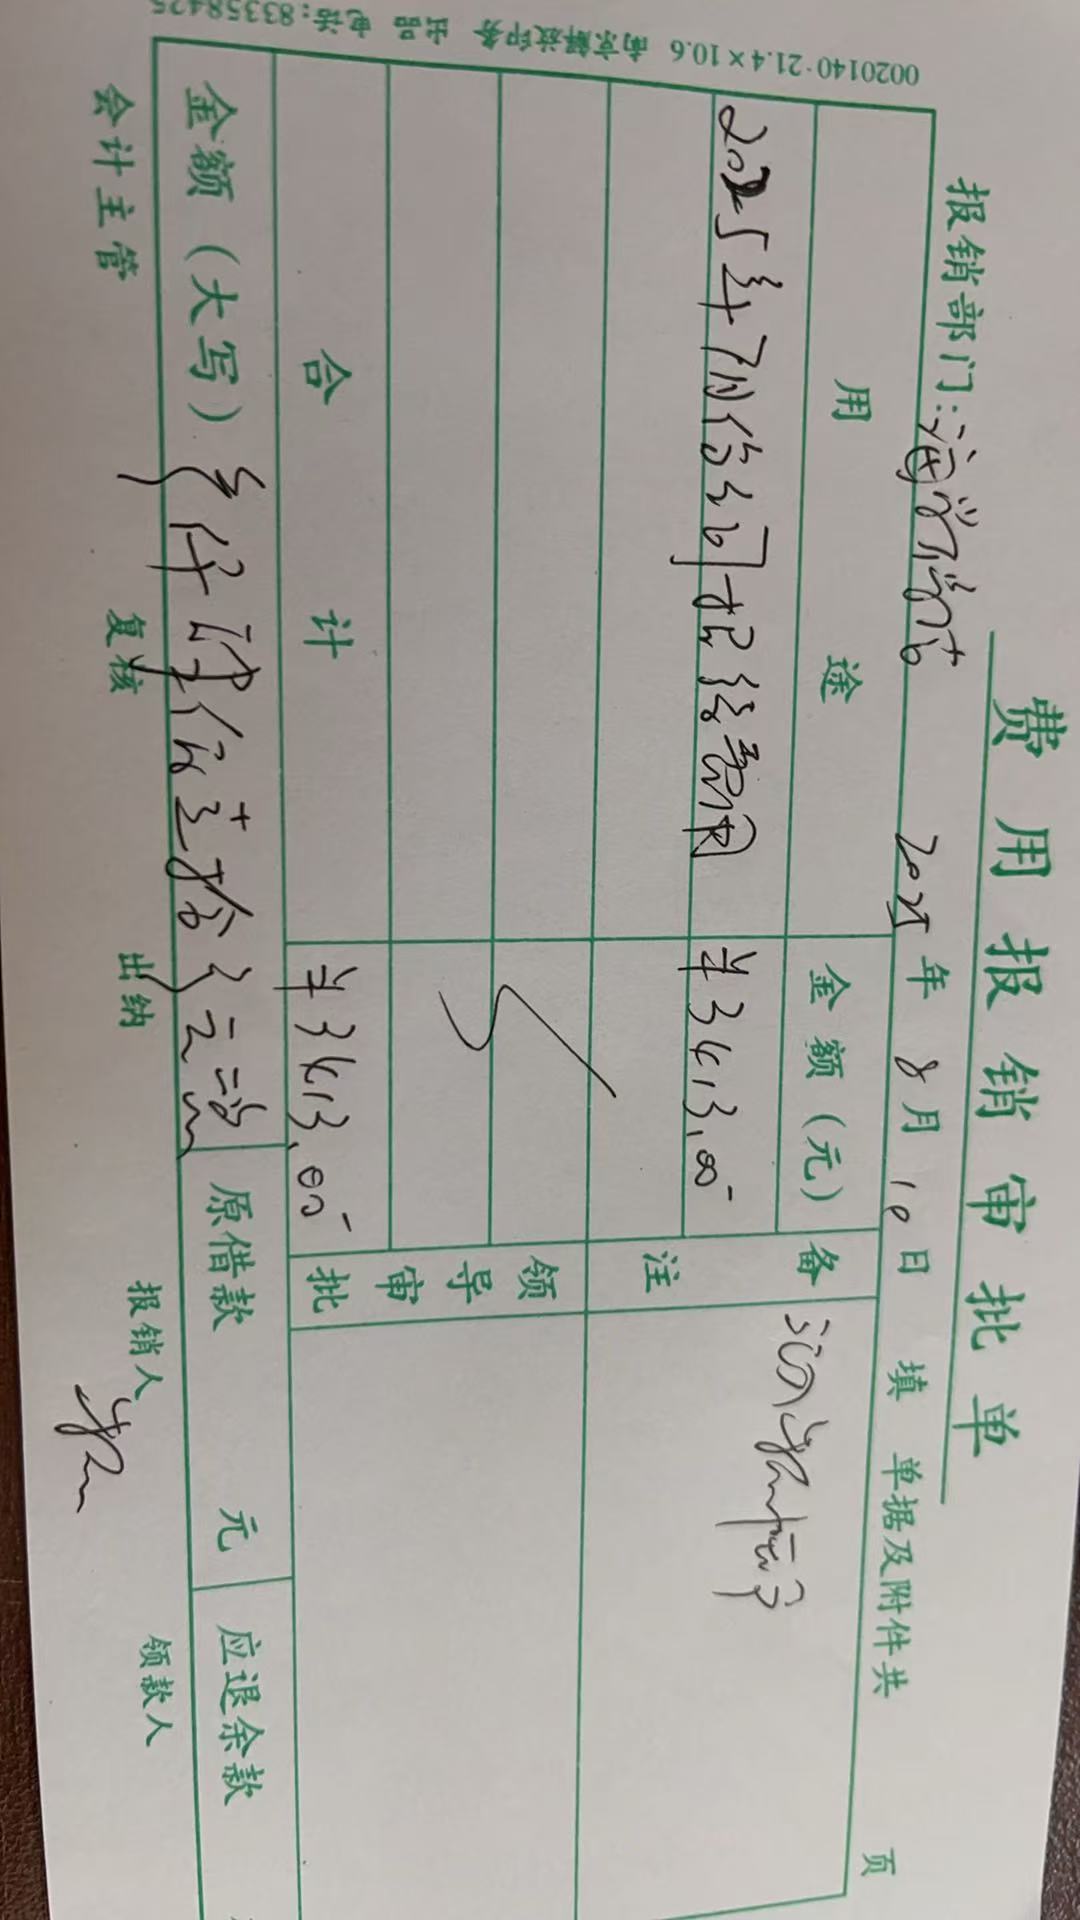 费用报销审批单
报销部门: 2025年8月10日 填 单据及附件共 页
用途 金额(元) 备注
2025年7月份 费用 ¥3413.00
领导审批
合计 ¥3413.00
金额(大写) 叁仟肆佰壹拾叁元 原借款 元 应退余款
会计主管 复核 出纳 报销人 领款人
0020140·21.4×10.6 南京解放印务 出品 电话:83358425